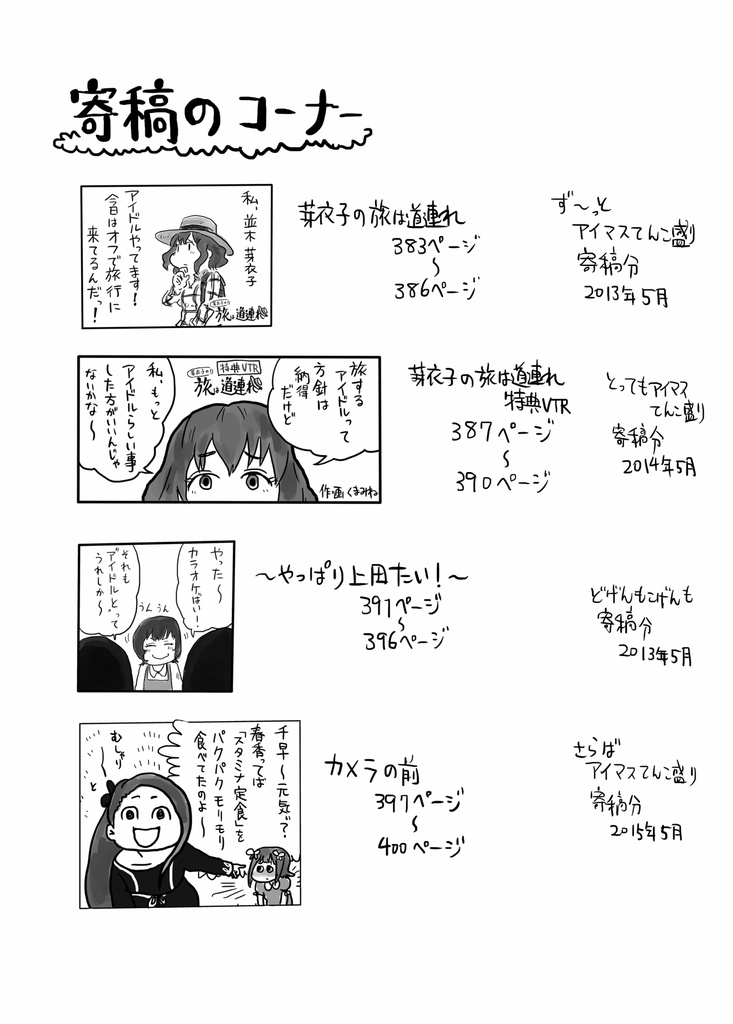 寄稿のコーナー
私、並木 芽衣子
アイドルやってます!
今日はオフで旅行に
来てるんだっ!
芽衣子の
旅は道連れ
芽衣子の旅は道連れ
383ページ
〜
386ページ
ず〜っと
アイマスてんこ盛り
寄稿分
2013年5月
旅する
アイドルって
方針は
納得
だけど
芽衣子の
特典VTR
旅は道連れ
私、もっと
アイドルらしい事
した方がいいんじゃ
ないかな〜
作画くまみね
芽衣子の旅は道連れ
特典VTR
387ページ
〜
390ページ
とってもアイマス
てんこ盛り
寄稿分
2014年5月
やった〜
カラオケばい!
それも
アイドルとって
うれしか〜
うん うん
〜やっぱり上田たい!〜
391ページ
〜
396ページ
どげんもこげんも
寄稿分
2013年5月
千早〜元気?
春香ってば
「スタミナ定食」を
パクパクモリモリ
食べてたのよ〜
むしゃり
と
カメラの前
397ページ
〜
400ページ
さらば
アイマスてんこ盛り
寄稿分
2015年5月